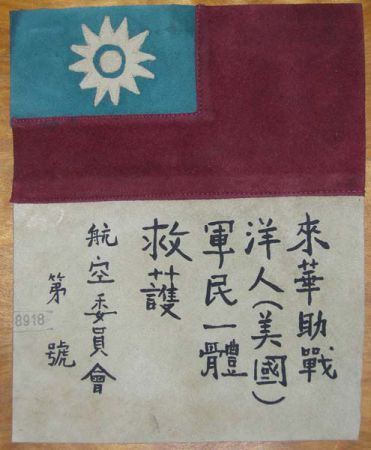 來華助戰
洋人(美國)
軍民一體
救護
航空委員會
第 號
8918